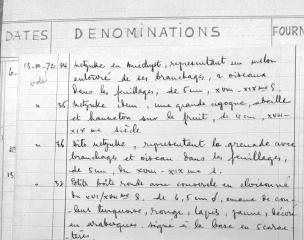 DATES DENOMINATIONS FOURN
6. 13-10-72 34 netzuke en muchyot, représentant un melon
entouré de ses branchages, 2 oiseaux
dans les feuillages, de 5cm, XVIII-XIXme S.
" 35 netzuke idem, une grande cigogne, abeille
et hanneton sur le fruit, de 4cm, XVIII-
XIXme siècle
" 36 dito netzuke, représentant la grenade avec
branchages et oiseau dans les feuillages,
de 5cm, du XVIII-XIXme s.
13. " 37 Petite boîte ronde avec couvercle en cloisonné
du XVI/XVIIme S. de 6,5cm d, émaux de cou-
leur turquoise, rouge, lapis, jaune, décors
en arabesques, signé à la base en 5 carac-
tères